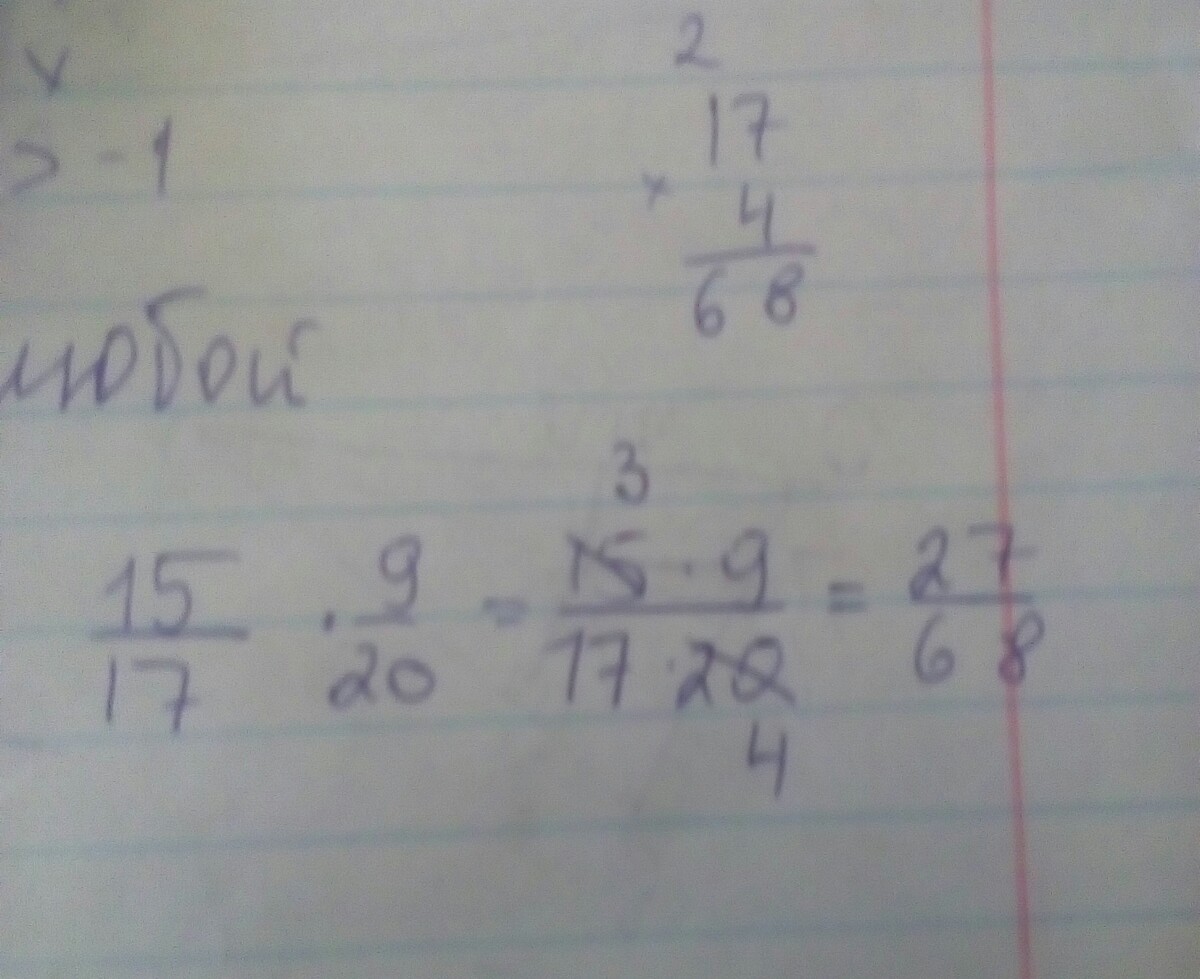 2
17
> -1
× 4
68
любой
3
15/17 · 9/20 = 15 · 9/17 · 20 = 27/68
4